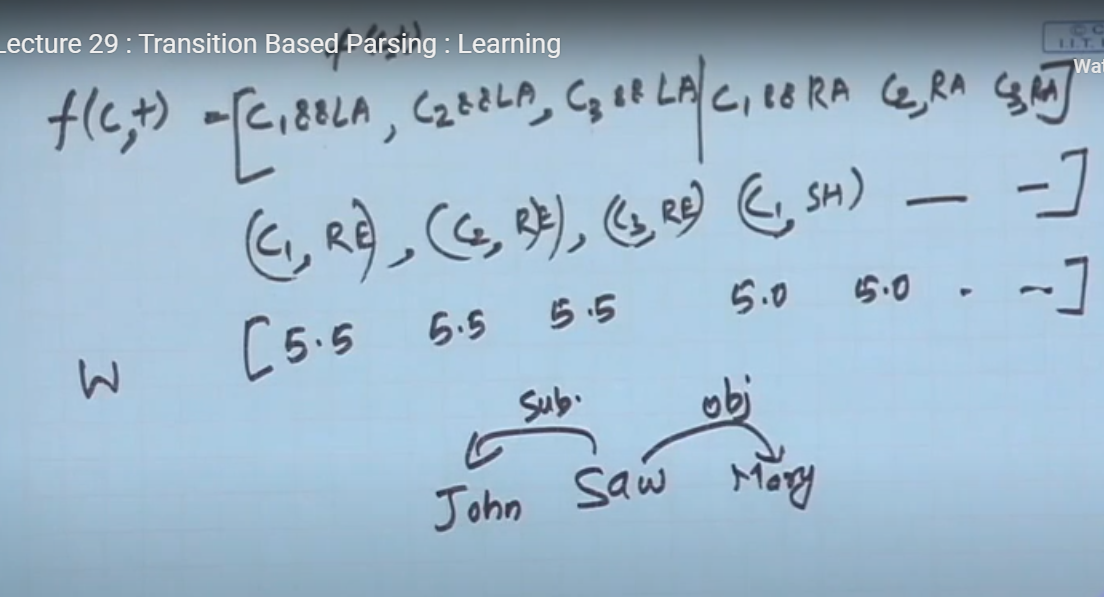 Lecture 29 : Transition Based Parsing : Learning
f(c,t) = [C₁&&LA, C₂&&LA, C₃&&LA | C₁&&RA C₂,RA C₃,RA]
(C₁, RE), (C₂, RE), (C₃, RE) (C₁, SH) — -]
W [5.5 5.5 5.5 5.0 5.0 . -]
Sub. obj
John Saw Mary